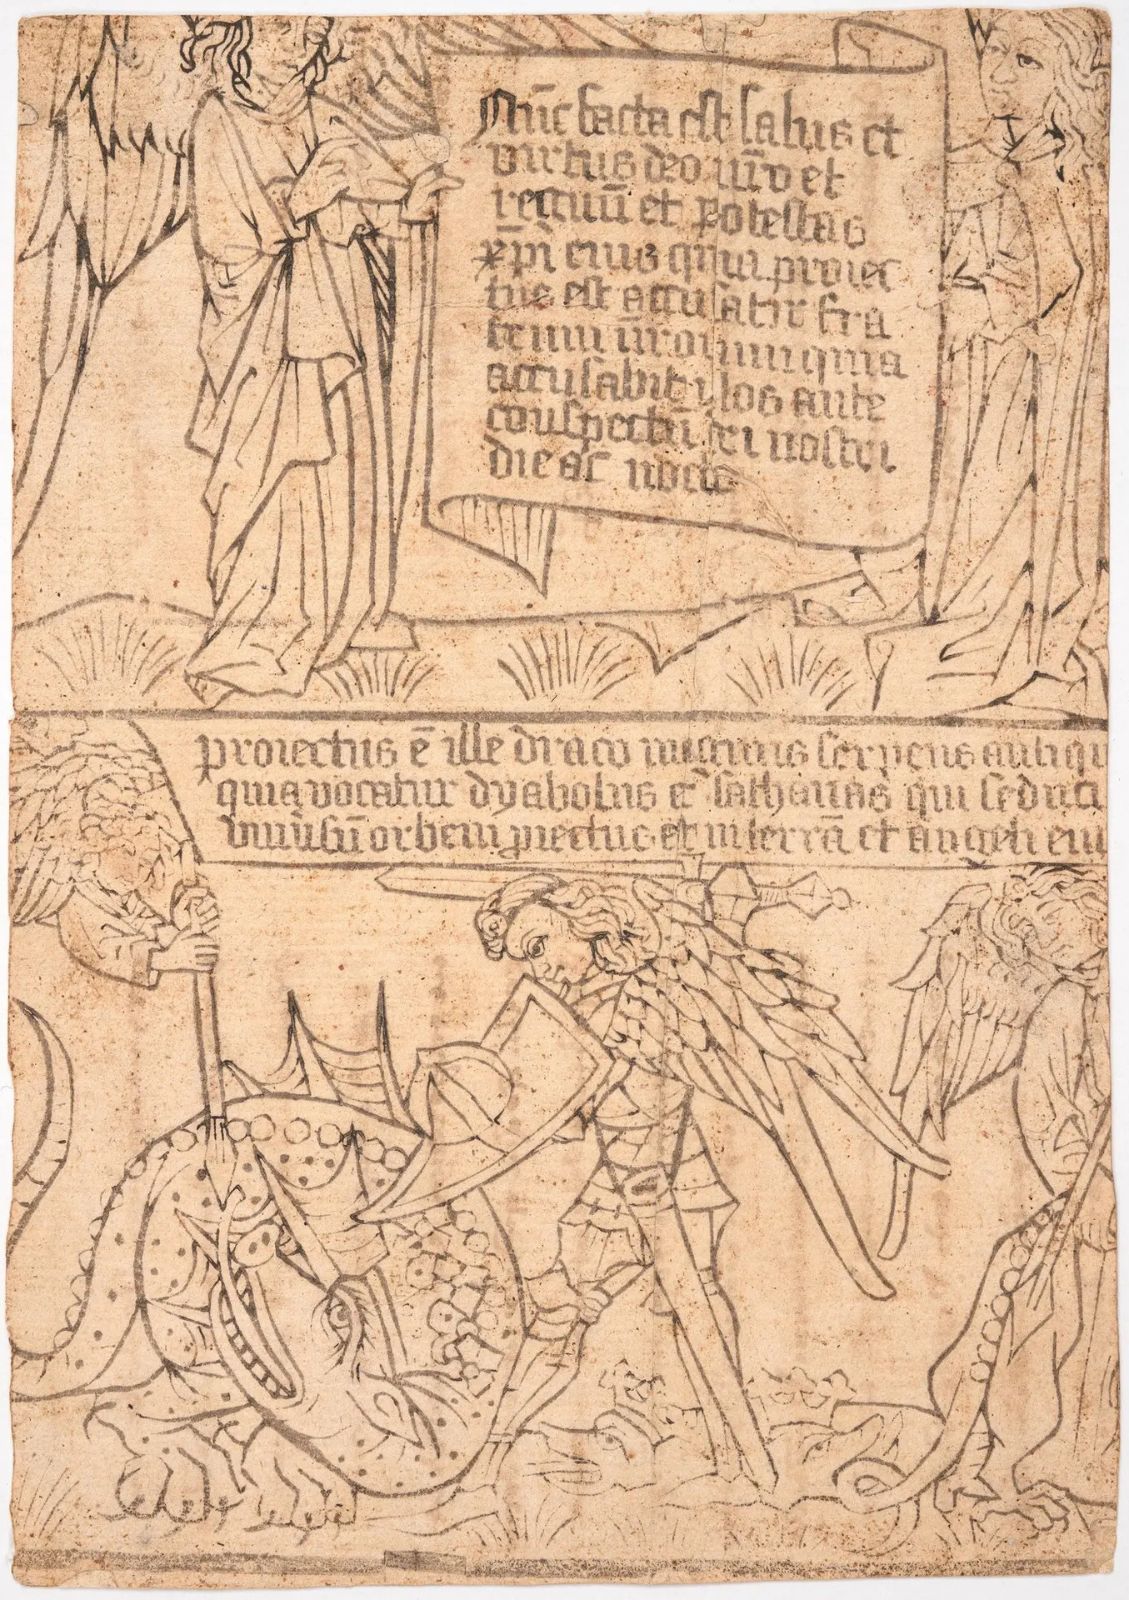 Nūc facta est salus et
virtus deo nr̄o et
regnū et potestas
xp̄i eius quia proiec
tus est accusator fra
trum nr̄orum quia
accusabit illos ante
conspectū dei nostri
die ac nocte
proiectus ē ille draco magnus serpens antiqu
quia vocatur dyabolus et sathanas qui seduci
univ̄sū orbem ꝓiectus et in terrā et angeli eiu